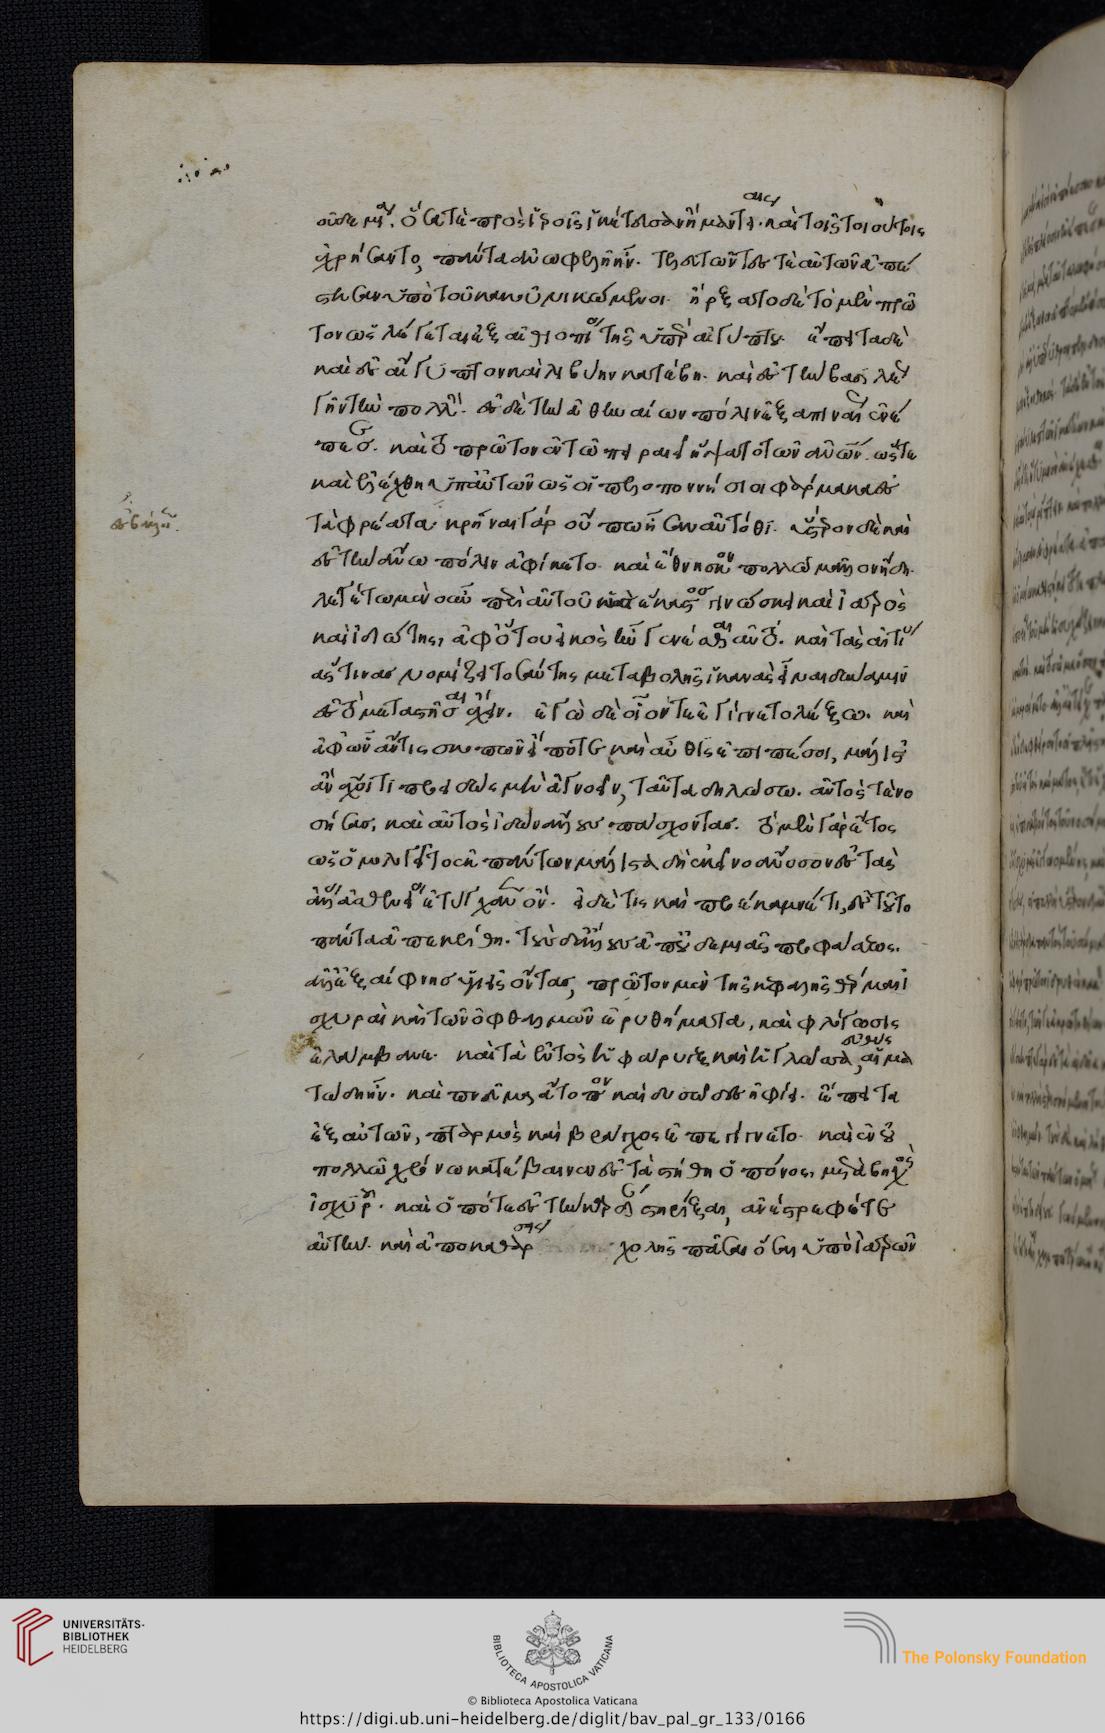 οὐδεμία. ὅσα τὲ πρὸς ἱεροῖς ἱκέτευσαν ἢ μαντείαις καὶ τοῖς τοιούτοις
ἐχρήσαντο, πάντα ἀνωφελῆ ἦν. τελευτῶντες τὲ αὐτῶν ἀπέ
στησαν ὑπὸ τοῦ κακοῦ νικώμενοι. ἤρξατο δὲ τὸ μὲν πρῶ
τον ὡς λέγεται ἐξ αἰθιοπίας τῆς ὑπὲρ αἰγύπτου. ἔπειτα δὲ
καὶ ἐς αἴγυπτον καὶ λιβύην κατέβη. καὶ ἐς τὴν βασιλέως
γῆν τὴν πολλήν. ἐς δὲ τὴν ἀθηναίων πόλιν ἐξαπιναίως ἐνέ
πεσε. καὶ τὸ πρῶτον ἐν τῷ πειραιεῖ ἥψατο τῶν ἀνθρώπων. ὥστε
καὶ ἐλέχθη ὑπ' αὐτῶν ὡς οἱ πελοποννήσιοι φάρμακα ἐσ
βεβλήκοιεν
τὰ φρέατα. κρῆναι γὰρ οὔπω ἦσαν αὐτόθι. ὕστερον δὲ καὶ
ἐς τὴν ἄνω πόλιν ἀφίκετο. καὶ ἔθνησκον πολλῷ μᾶλλον ἤδη.
λεγέτω μὲν οὖν περὶ αὐτοῦ ἕκαστος γινώσκει καὶ ἰατρὸς
καὶ ἰδιώτης, ἀφ' ὅτου εἰκὸς ἦν γενέσθαι αὐτό. καὶ τὰς αἰτί
ας ἅστινας νομίζει τοσαύτης μεταβολῆς ἱκανὰς εἶναι δύναμιν
ἐς τὸ μεταστῆσαι σχεῖν. ἐγὼ δὲ οἷόν τε ἐγίγνετο λέξω. καὶ
ἀφ' ὧν ἄν τις σκοπῶν εἴ ποτε καὶ αὖθις ἐπιπέσοι, μάλιστ'
ἂν ἔχοι τι προειδὼς μὴ ἀγνοεῖν, ταῦτα δηλώσω. αὐτὸς τὲ νο
σήσας, καὶ αὐτὸς ἰδὼν ἄλλους πάσχοντας. τὸ μὲν γὰρ ἔτος
ὡς ὡμολογεῖτο ἐκ πάντων μάλιστα δὴ ἐκεῖνο ἄνοσον ἐς τὰς
ἄλλας ἀσθενείας ἐτύγχανεν ὄν. εἰ δέ τις καὶ προέκαμνέ τι, ἐς τοῦτο
πάντα ἀπεκρίθη. τοὺς δὲ ἄλλους ἀπ' οὐδεμιᾶς προφάσεως.
ἀλλ' ἐξαίφνης ὑγιεῖς ὄντας, πρῶτον μὲν τῆς κεφαλῆς θέρμαι ἰ
σχυραὶ καὶ τῶν ὀφθαλμῶν ἐρυθήματα, καὶ φλόγωσις
ἐλάμβανε. καὶ τὰ ἐντὸς ἥ τε φάρυγξ καὶ ἡ γλῶσσα, εὐθὺς αἱμα
τώδη ἦν. καὶ πνεῦμα ἄτοπον καὶ δυσῶδες ἠφίει. ἔπειτα
ἐξ αὐτῶν, πταρμὸς καὶ βράγχος ἐπεγίγνετο. καὶ ἐν οὐ
πολλῷ χρόνῳ κατέβαινεν ἐς τὰ στήθη ὁ πόνος, μετὰ βηχὸς
ἰσχυροῦ. καὶ ὁπότε ἐς τὴν καρδίαν στηρίξαι, ἀνέστρεφέ τε
αὐτὴν. καὶ ἀποκαθάρσεις χολῆς πᾶσαι ὅσαι ὑπὸ ἰατρῶν
UNIVERSITÄTS-
BIBLIOTHEK
HEIDELBERG
BIBLIOTECA APOSTOLICA VATICANA
The Polonsky Foundation
© Biblioteca Apostolica Vaticana
https://digi.ub.uni-heidelberg.de/diglit/bav_pal_gr_133/0166